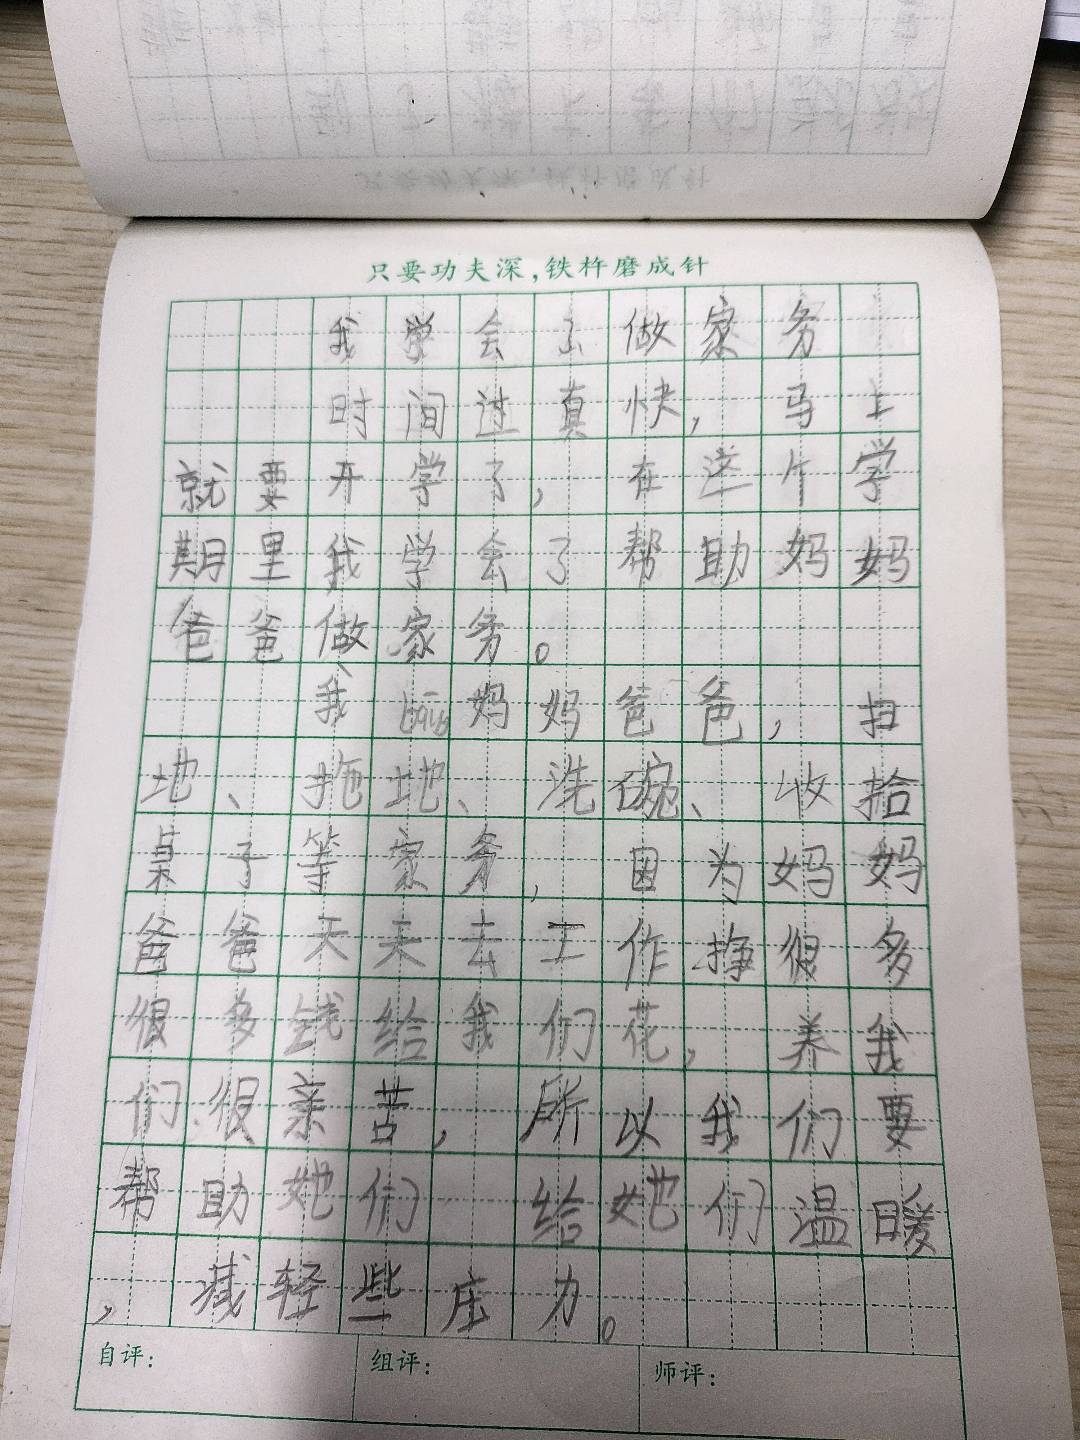 只要功夫深，铁杵磨成针
我学会了做家务
时间过真快，马上
就要开学了，在这个学
期里我学会了帮助妈妈
爸爸做家务。
我bāng妈妈爸爸，扫
地、拖地、洗碗、收拾
桌子等家务，因为妈妈
爸爸天天去工作挣很多
很多钱给我们花，养我
们很亲苦，所以我们要
帮助她们 给她们温暖
，减轻些庄力。
自评：
组评：
师评：